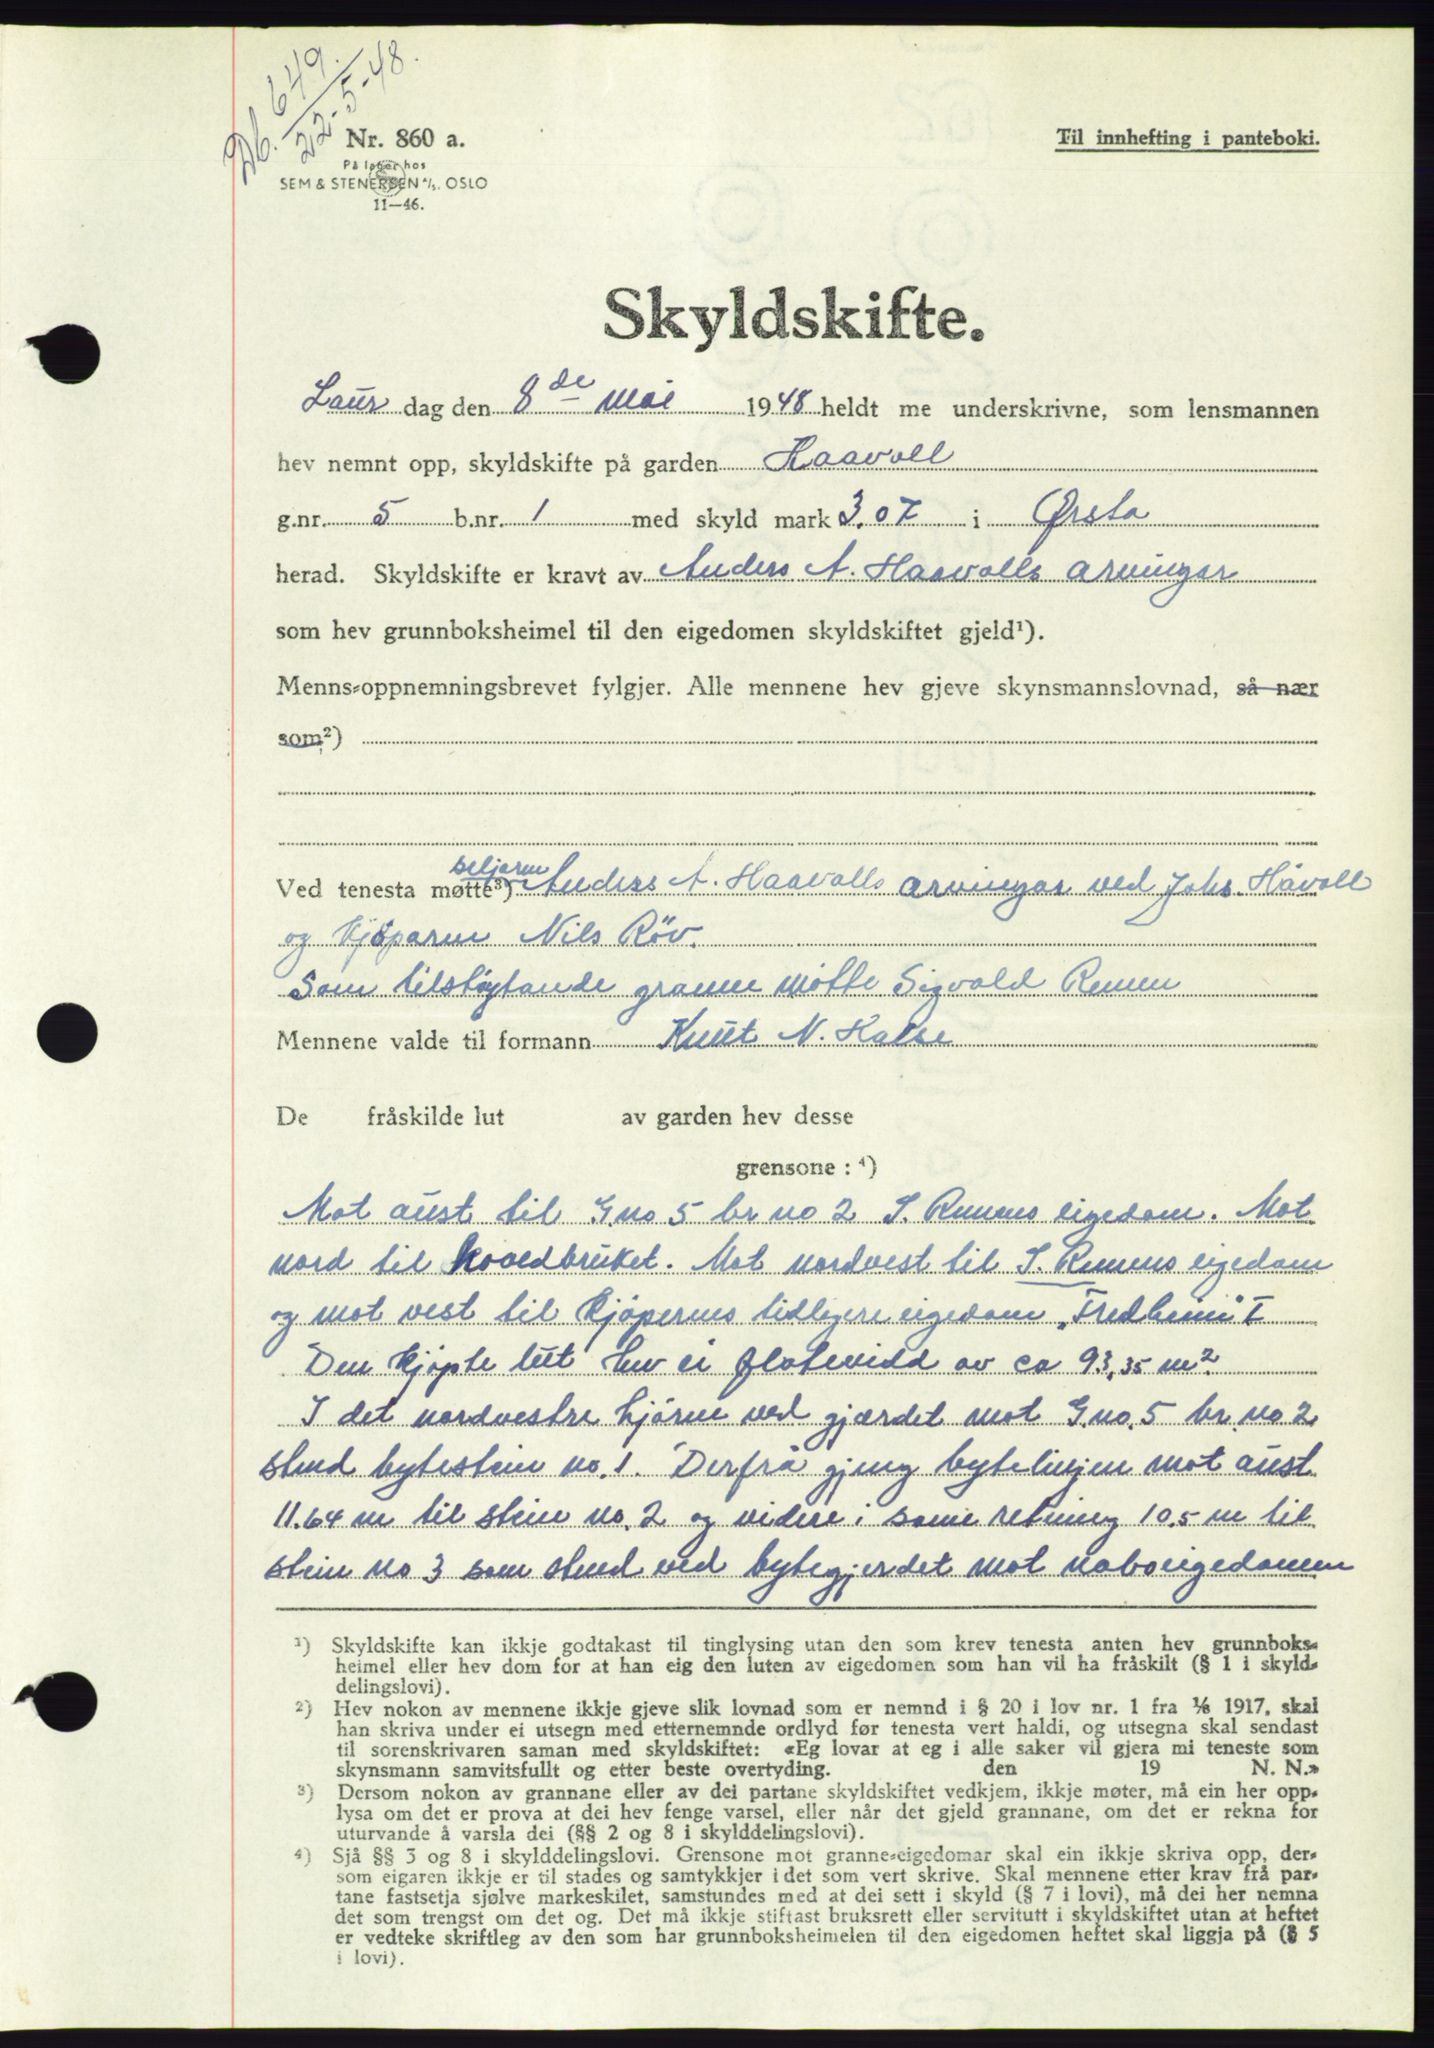 Db. 649.
22-5-48.
Nr. 860 a.
Til innhefting i panteboki.
På lager hos
SEM & STENERSEN A/S. OSLO
11—46.
Skyldskifte.
Laur dag den 8de mai 1948 heldt me underskrivne, som lensmannen
hev nemnt opp, skyldskifte på garden Haavoll
g.nr. 5 b.nr. 1 med skyld mark 3.07 i Ørsta
herad. Skyldskifte er kravt av Anders A. Haavolls arvingar
som hev grunnboksheimel til den eigedomen skyldskiftet gjeld¹).
Menns-oppnemningsbrevet fylgjer. Alle mennene hev gjeve skynsmannslovnad, så nær
som²)
seljarne
Ved tenesta møtte³) Anders A. Haavolls arvingar ved Johs. Håvoll
og kjöparen Nils Röv.
Som tilstøytande granne møtte Sigvald Remen
Mennene valde til formann Knut N. Halse
De fråskilde lut av garden hev desse
grensone : ⁴)
Mot aust til G no 5 br no 2 S. Remens eigedom. Mot
nord til hovedbruket. Mot nordvest til S. Remens eigedom
og mot vest til kjøperens tidligere eigedom „Fredheim" I
Den kjøpte lut hev ei flatevidd av ca 93,35 m²
I det nordvestre hjörne ved gjerdet mot G.no. 5 br. no 2
stend bytestein no. 1. Derfrå gjeng bytelinjen mot aust
11.64 m til stein no. 2 og videre i same retning 10.5 m til
stein no 3 som stend ved bytegjerdet mot naboeigedomen
¹) Skyldskifte kan ikkje godtakast til tinglysing utan den som krev tenesta anten hev grunnboks-
heimel eller hev dom for at han eig den luten av eigedomen som han vil ha fråskilt (§ 1 i skyld-
delingslovi).
²) Hev nokon av mennene ikkje gjeve slik lovnad som er nemnd i § 20 i lov nr. 1 fra 1/8 1917, skal
han skriva under ei utsegn med etternemnde ordlyd før tenesta vert haldi, og utsegna skal sendast
til sorenskrivaren saman med skyldskiftet: «Eg lovar at eg i alle saker vil gjera mi teneste som
skynsmann samvitsfullt og etter beste overtyding. den 19 N. N.»
³) Dersom nokon av grannane eller av dei partane skyldskiftet vedkjem, ikkje møter, må ein her opp-
lysa om det er prova at dei hev fenge varsel, eller når det gjeld grannane, om det er rekna for
uturvande å varsla dei (§§ 2 og 8 i skylddelingslovi).
⁴) Sjå §§ 3 og 8 i skylddelingslovi. Grensone mot granne-eigedomar skal ein ikkje skriva opp, der-
som eigaren ikkje er til stades og samtykkjer i det som vert skrive. Skal mennene etter krav frå par-
tane fastsetja sjølve markeskilet, samstundes med at dei sett i skyld (§ 7 i lovi), må dei her nemna
det som trengst om det og. Det må ikkje stiftast bruksrett eller servitutt i skyldskiftet utan at heftet
er vedteke skriftleg av den som har grunnboksheimelen til den eigedomen heftet skal liggja på (§ 5
i lovi).